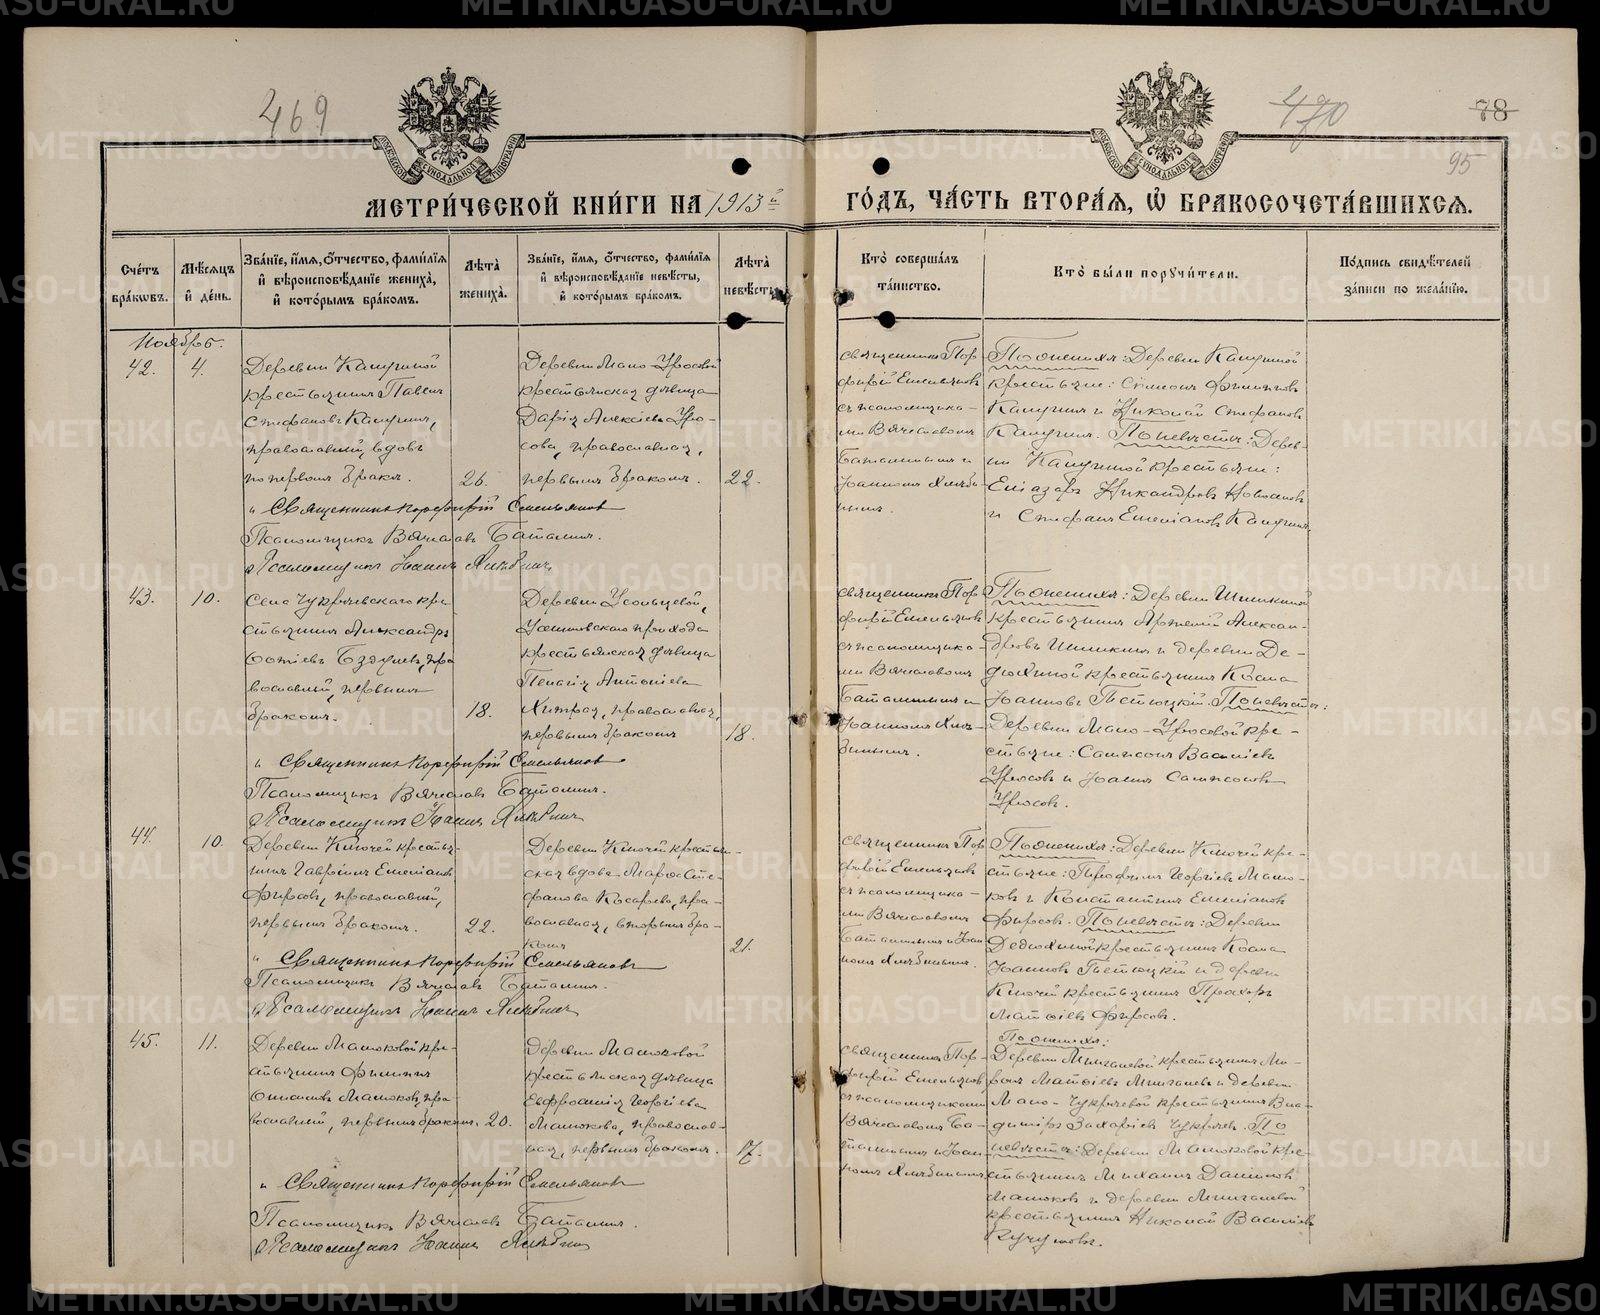 469
470
78
95
МЕТРИ́ЧЕСКОЙ КНИ́ГИ НА 1913й ГО́ДЪ, ЧА́СТЬ ВТОРА́Я, Ѡ БРАКОСОЧЕТА́ВШИХСЯ.
Сче́тъ бра́ковъ.
Мѣ́сяцъ и де́нь.
Зва́ніе, и́мя, о́тчество, фами́лія и вѣроисповѣ́даніе жениха̀, и кото́рымъ бра́комъ.
Лѣ́та жениха̀.
Зва́ніе, и́мя, о́тчество, фами́лія и вѣроисповѣ́даніе невѣ́сты, и кото́рымъ бра́комъ.
Лѣ́та невѣ́сты
Кто̀ соверша́лъ та́инство.
Кто̀ бы́ли поручи́тели.
По́дпись свидѣ́телей за́писи по жела́нію.
Ноябрь.
42.
4.
Деревни
крестьянинъ Павелъ
Стефановъ
православный, вдовъ
по первомъ бракѣ.
26.
Деревни Мало-Уросовой
крестьянская дѣвица
Дарія Алексіева Уро-
сова, православная,
первымъ бракомъ.
22.
Священникъ Пор-
фирій Емельяновъ
съ псаломщика-
ми Вячеславомъ
Баталинымъ и
Іоанномъ Хлѣби-
нымъ.
По женихѣ: Деревни
крестьяне: Симеонъ Филипповъ
и Николай Стефановъ
По невѣстѣ: Дерев-
ни крестьяне:
Елеазаръ Никандровъ
и Стефанъ Емеліановъ
Священникъ Порфирій Емельяновъ
Псаломщикъ Вячеславъ Баталинъ.
Псаломщикъ Іоаннъ Хлѣбинъ
43.
10.
Села Чукреевскаго кре-
стьянинъ Александръ
пра-
вославный, первымъ
бракомъ.
18.
Деревни Усольцевой,
прихода
крестьянская дѣвица
Пелагія Антоніева
Хитрая, православная,
первымъ бракомъ
18.
Священникъ Пор-
фирій Емельяновъ
съ псаломщика-
ми Вячеславомъ
Баталинымъ и
Іоанномъ Хлѣ-
бинымъ.
По женихѣ: Деревни Шишкиной
крестьянинъ Артемій Алексан-
дровъ Шишкинъ и деревни Де-
дюхиной крестьянинъ Косма
Іоанновъ По невѣстѣ:
Деревни Мало-Уросовой кре-
стьяне: Сампсонъ Василіевъ
Уросовъ и Іоаннъ Сампсоновъ
Уросовъ.
Священникъ Порфирій Емельяновъ
Псаломщикъ Вячеславъ Баталинъ.
Псаломщикъ Іоаннъ Хлѣбинъ
44.
10.
Деревни Ключей крестья-
нинъ Гавріилъ Емеліановъ
Фирсовъ, православный,
первымъ бракомъ.
22.
Деревни Ключей крестьян-
ская вдова Марѳа Сте-
фанова Косарева, пра-
вославная, вторымъ бра-
комъ
21.
Священникъ Пор-
фирій Емельяновъ
съ псаломщика-
ми Вячеславомъ
Баталинымъ и Іоан-
номъ Хлѣбинымъ.
По женихѣ: Деревни Ключей кре-
стьяне: Трофимъ Георгіевъ
и Константинъ Емеліановъ
Фирсовъ. По невѣстѣ: Деревни
Дедюхиной крестьянинъ Косма
Іоанновъ и деревни
Ключей крестьянинъ Прохоръ
Матѳіевъ Фирсовъ.
Священникъ Порфирій Емельяновъ
Псаломщикъ Вячеславъ Баталинъ.
Псаломщикъ Іоаннъ Хлѣбинъ
45.
11.
Деревни Машоковой кре-
стьянинъ Филиппъ
Машоковъ, пра-
вославный, первымъ бракомъ.
20.
Деревни Машоковой
крестьянская дѣвица
Евфросинія Георгіева
Машокова, православ-
ная, первымъ бракомъ.
17.
Священникъ Пор-
фирій Емельяновъ
съ псаломщиками
Вячеславомъ Ба-
талинымъ и Іоан-
номъ Хлѣбинымъ
По женихѣ:
Деревни крестьянинъ
Матѳіевъ и деревни
Мало-Чукреевой крестьянинъ Вла-
диміръ Захаріевъ Чукреевъ. По
невѣстѣ: Деревни Машоковой кре-
стьянинъ Михаилъ Даніиловъ
Машоковъ и деревни
крестьянинъ Николай Василіевъ
Священникъ Порфирій Емельяновъ
Псаломщикъ Вячеславъ Баталинъ.
Псаломщикъ Іоаннъ Хлѣбинъ
METRIKI.GASO-URAL.RU